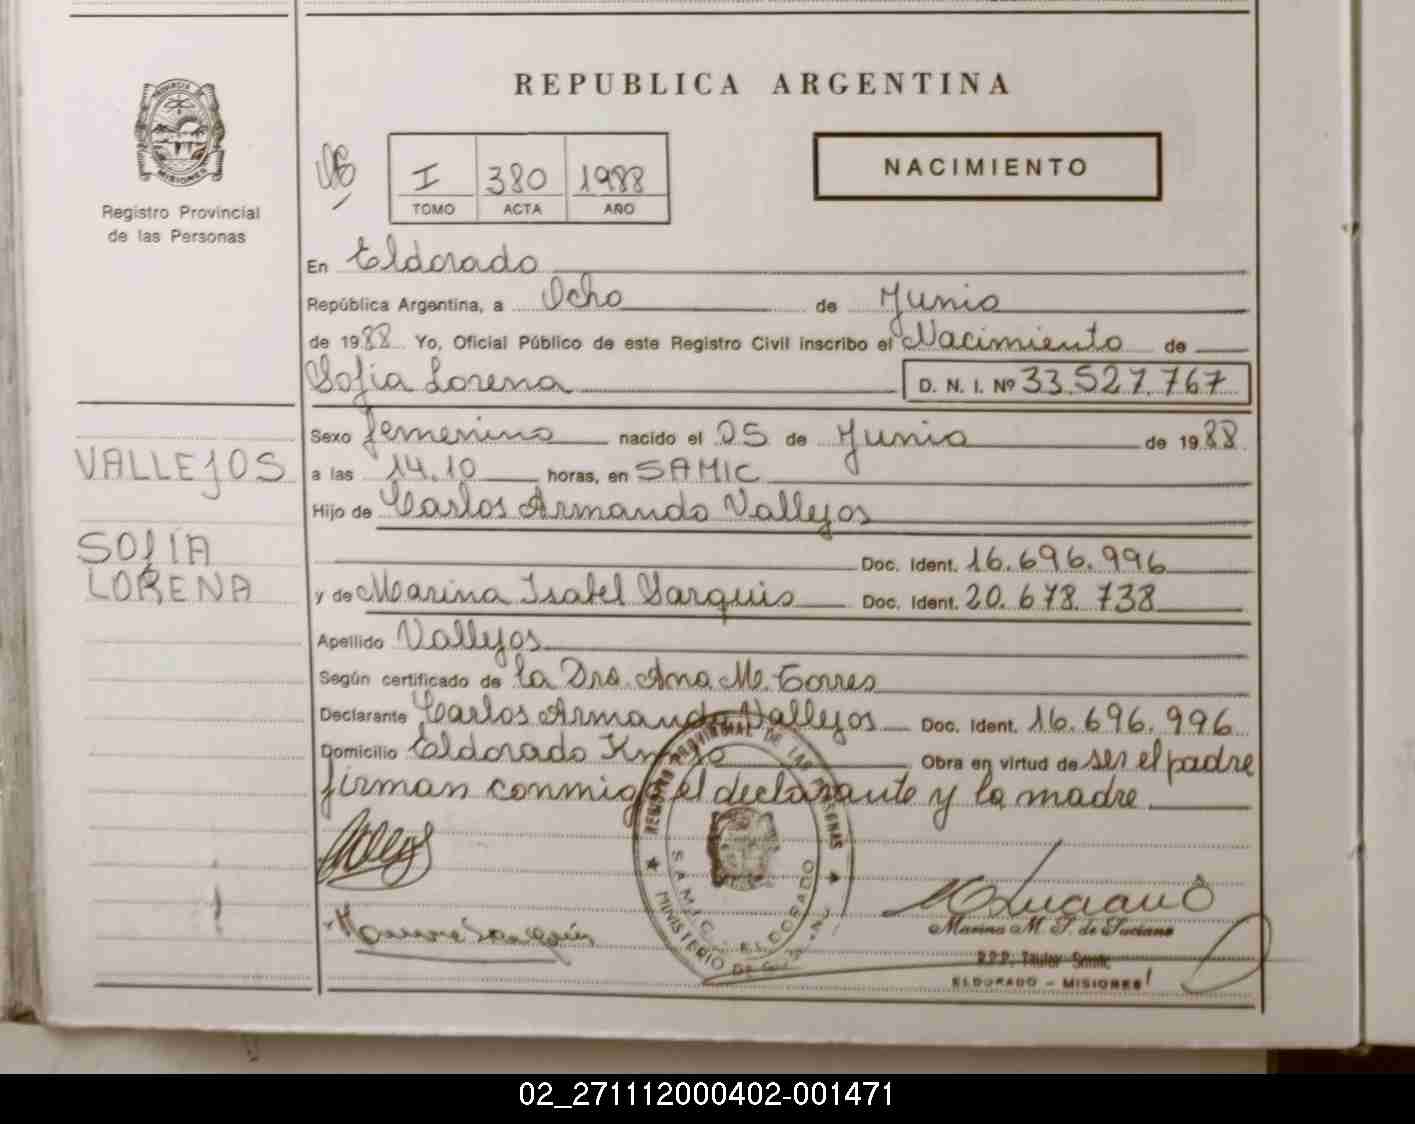 REPUBLICA ARGENTINA
PROVINCIA DE
MISIONES
Registro Provincial
de las Personas
I 380 1988
TOMO ACTA AÑO
NACIMIENTO
En Eldorado
República Argentina, a Ocho de Junio
de 1988 Yo, Oficial Público de este Registro Civil inscribo el Nacimiento de
Sofia Lorena D. N. I. Nº 33.527.767
Sexo femenino nacido el 05 de Junio de 1988
VALLEJOS
a las 14.10 horas, en SAMIC
Hijo de Carlos Armando Vallejos
SOFIA
LORENA
Doc. Ident. 16.696.996
y de Marina Isabel Sarquis Doc. Ident. 20.678.738
Apellido Vallejos
Según certificado de la Dra. Ana M. Torres
Declarante Carlos Armando Vallejos Doc. Ident. 16.696.996
Domicilio Eldorado Obra en virtud de ser el padre
firman conmigo el declarante y la madre
REGISTRO PROVINCIAL DE LAS PERSONAS
S.A.M.I.C. ELDORADO
MINISTERIO DE
Marina M. de Luciano
ELDORADO - MISIONES
02_271112000402-001471